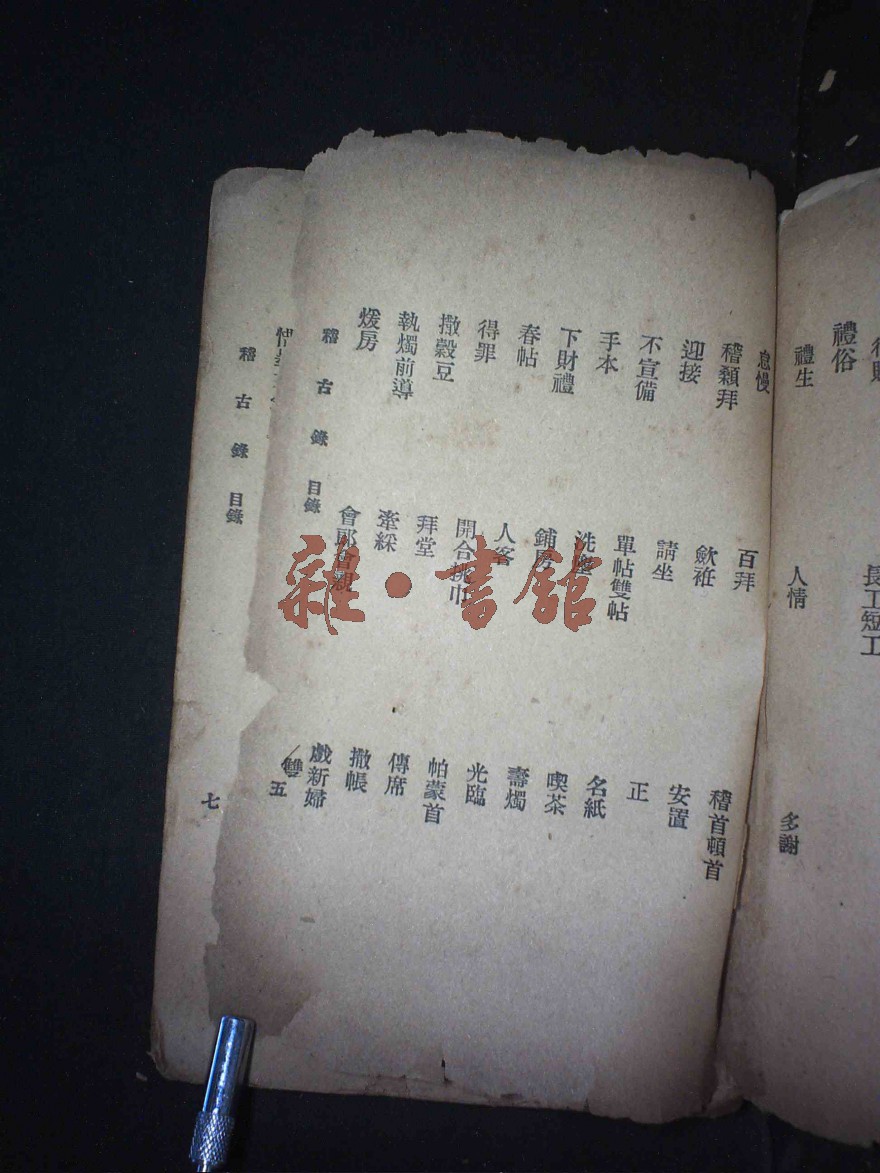 長工短工
禮俗
禮生 人情 多謝
怠慢 百拜 稽首頓首
稽顙拜 歛衽 安置
迎接 請坐 正
不宣備 單帖雙帖 名紙
手本 洗塵 喫茶
下財禮 鋪房 壽燭
春帖 人客 光臨
得罪 開合挑巾 帕蒙首
撒穀豆 拜堂 傳席
執燭前導 牽綵 撒帳
煖房 會郎會親 戲新婦
稽古錄 目錄 五
雙
稽古錄 目錄 七
雜·書館